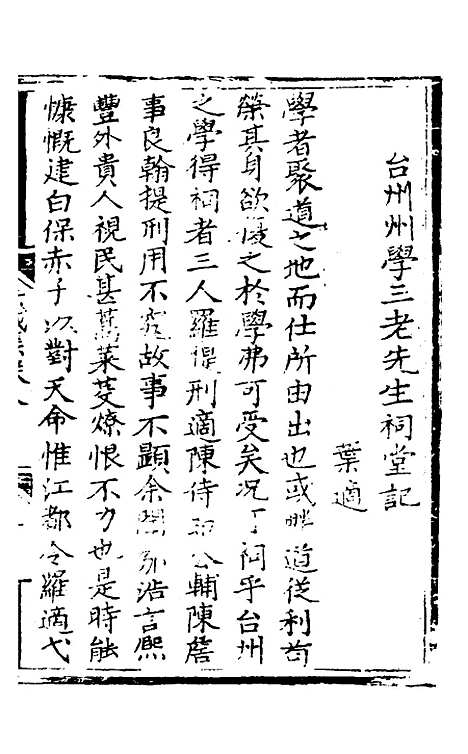 台州州學三老先生祠堂記
葉適
學者聚道之地而仕所由出也或畔道從利苟
榮其身欲復之於學弗可受矣况于祠乎台州
之學得祠者三人羅提刑適陳侍郎公輔陳詹
事良翰提刑用不究故事不顯余聞鄒浩言熙
豐外貴人視民甚蒿萊芟燎恨不力也是時能
慷慨建白保赤子以對天命惟江都令羅適弋